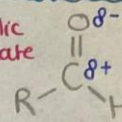 lic
ate
O δ-
C δ+
R H